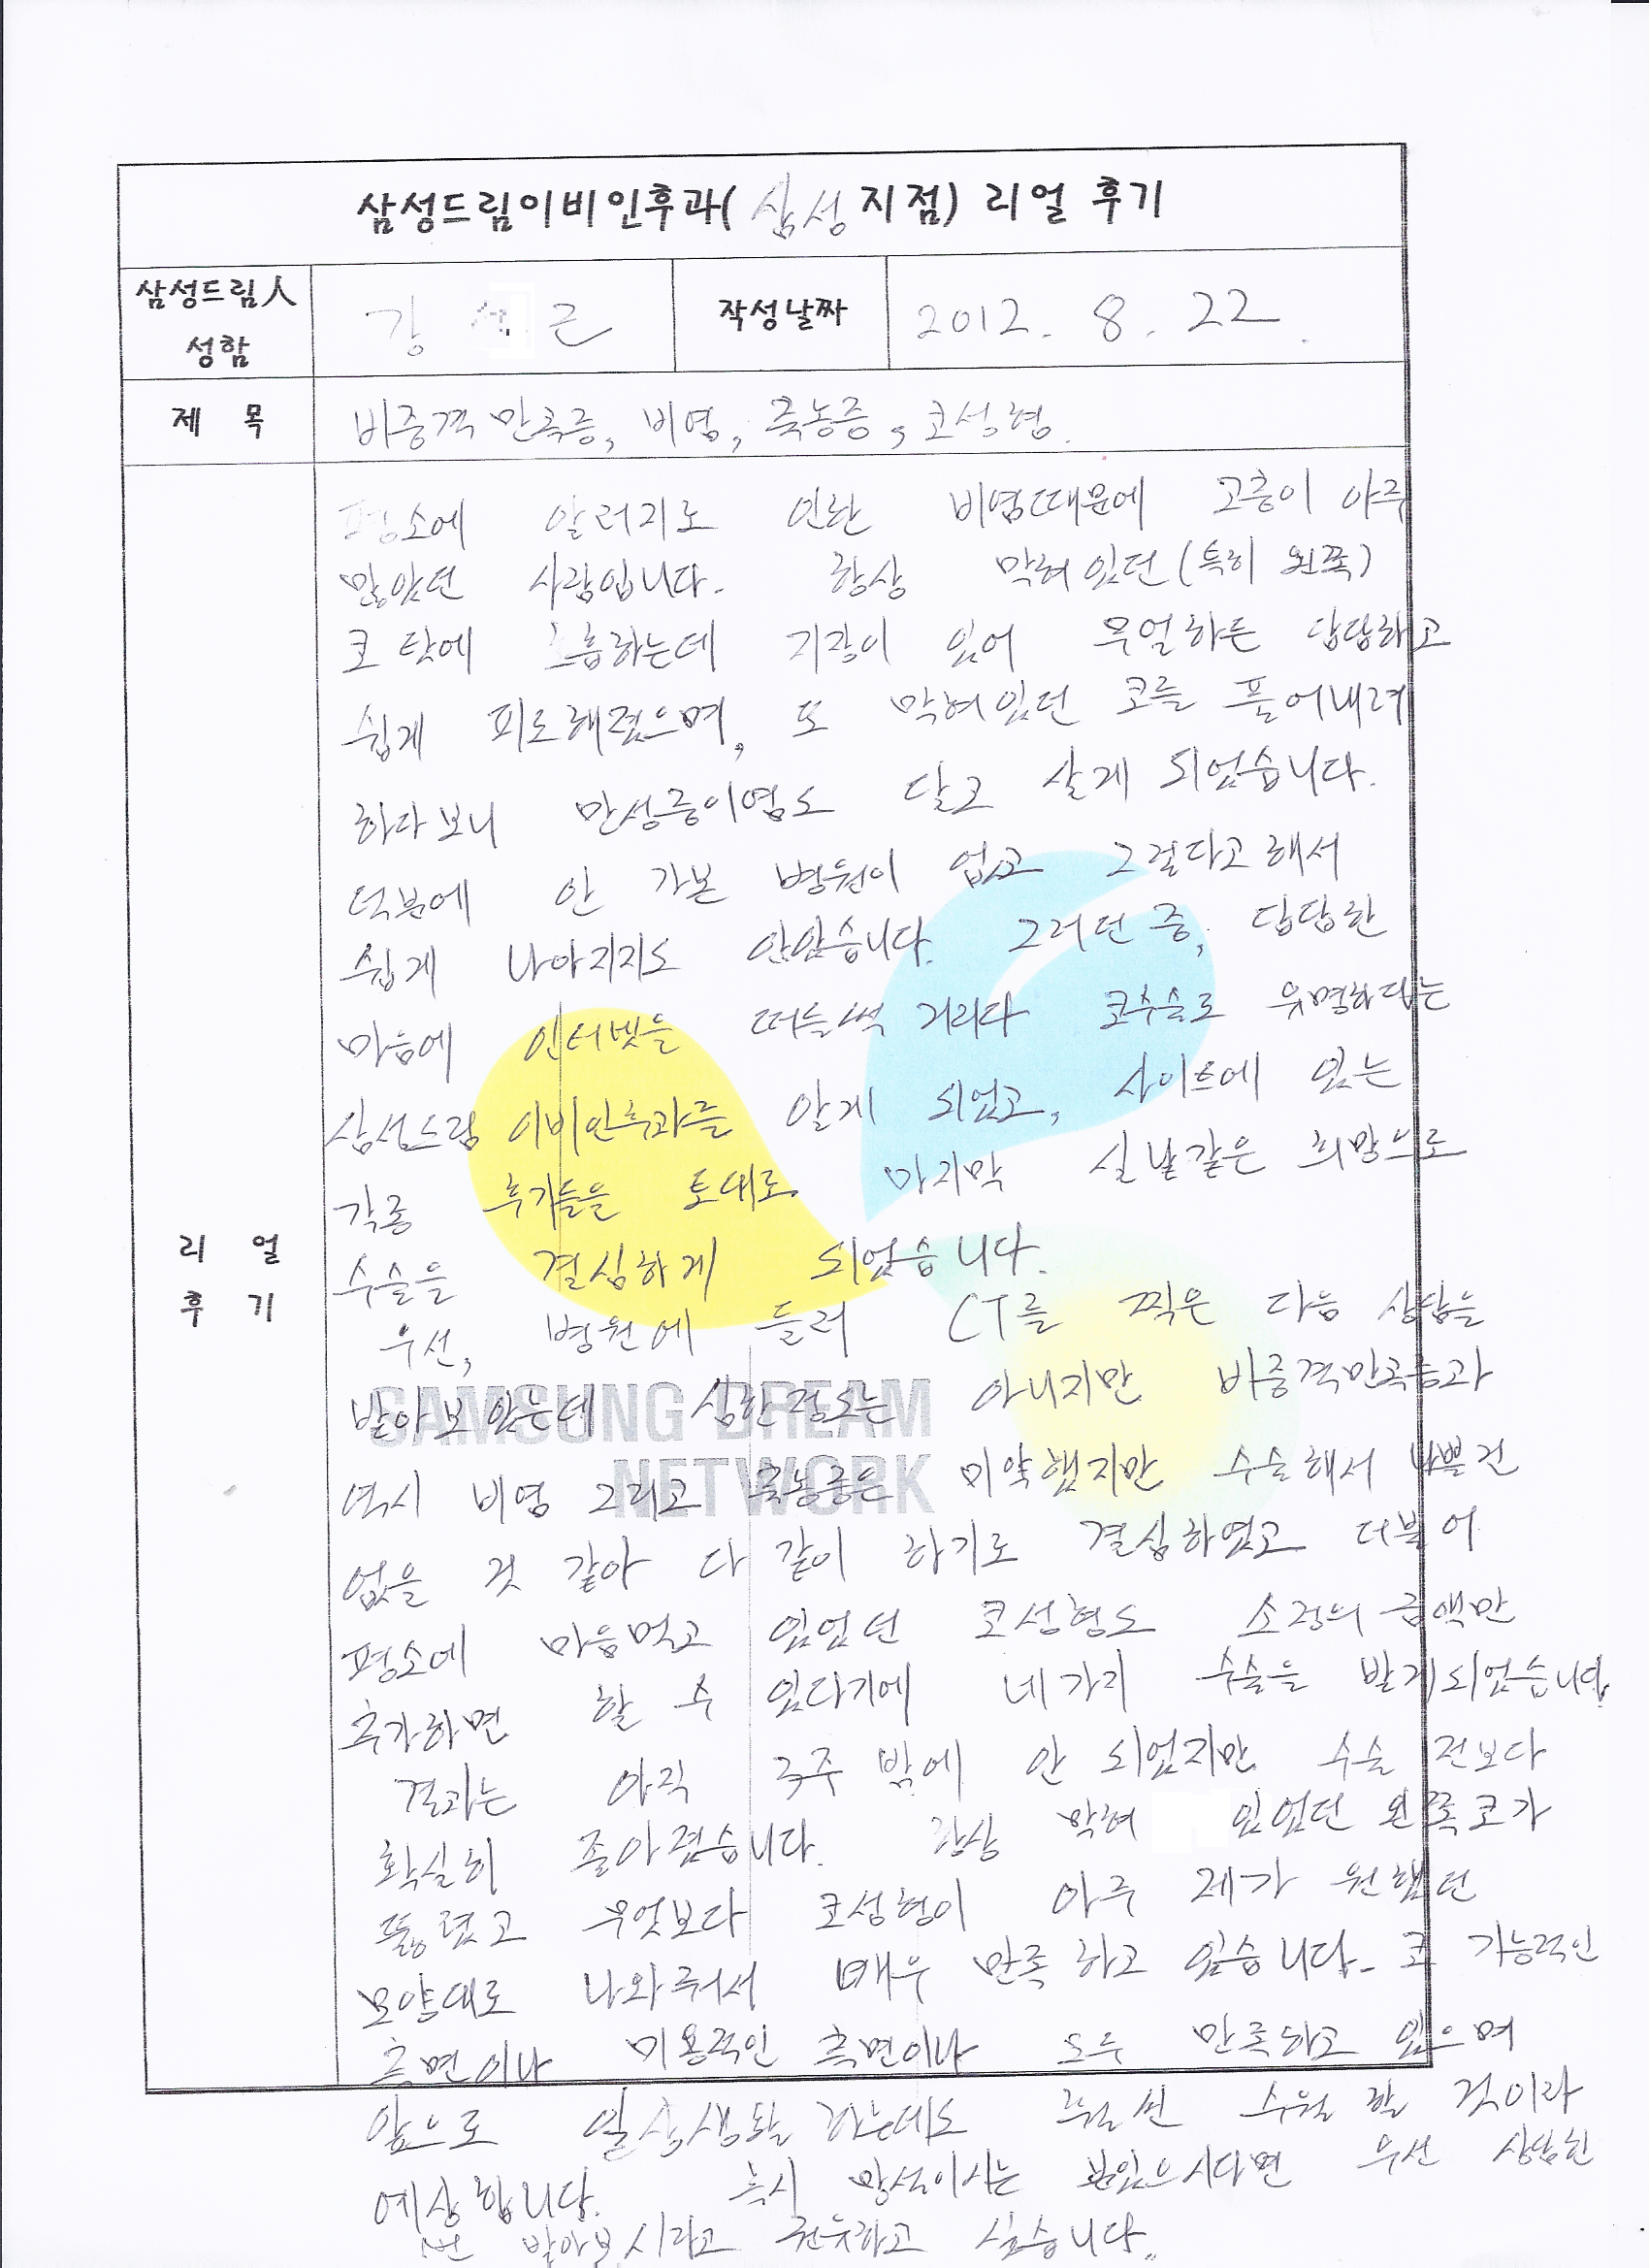 삼성드림이비인후과(삼성지점) 리얼 후기
삼성드림人
성함
강 근
작성날짜
2012. 8. 22.
제 목
비중격 만곡증, 비염, 축농증, 코성형.
평소에 알러지로 인한 비염때문에 고충이 아주
많았던 사람입니다. 항상 막혀있던(특히 왼쪽)
코 탓에 호흡하는데 지장이 있어 무얼하든 답답하고
쉽게 피로해졌으며, 또 막혀있던 코를 풀어내려
하다보니 만성중이염도 달고 살게 되었습니다.
덕분에 안 가본 병원이 없고 그렇다고해서
쉽게 나아지지도 않았습니다. 그러던 중, 답답한
마음에 인터넷을 떠들썩 거리다 코수술로 유명하다는
삼성드림 이비인후과를 알게 되었고, 사이트에 있는
각종 후기들을 토대로 마지막 실낱같은 희망으로
수술을 결심하게 되었습니다.
우선, 병원에 들러 CT를 찍은 다음 상담을
받아보았는데 심한정도는 아니지만 비중격만곡증과
역시 비염 그리고 축농증은 미약했지만 수술해서 나쁠건
없을 것 같아 다 같이 하기로 결심하였고 더불어
평소에 마음먹고 있었던 코성형도 소정의 금액만
추가하면 할 수 있다기에 네가지 수술을 받게되었습니다.
리 얼
후 기
결과는 아직 3주 밖에 안 되었지만 수술 전보다
확실히 좋아졌습니다. 항상 막혀 있었던 왼쪽코가
뚫렸고 무엇보다 코성형이 아주 제가 원했던
모양대로 나와줘서 매우 만족하고 있습니다. 코 기능적인
측면이나 미용적인 측면이나 모두 만족하고 있으며
앞으로 일상생활 하는데도 훨씬 수월할 것이라
예상합니다. 혹시 망설이시는 분있으시다면 우선 상담한
번 받아보시라고 권유하고 싶습니다.
SAMSUNG DREAM
NETWORK